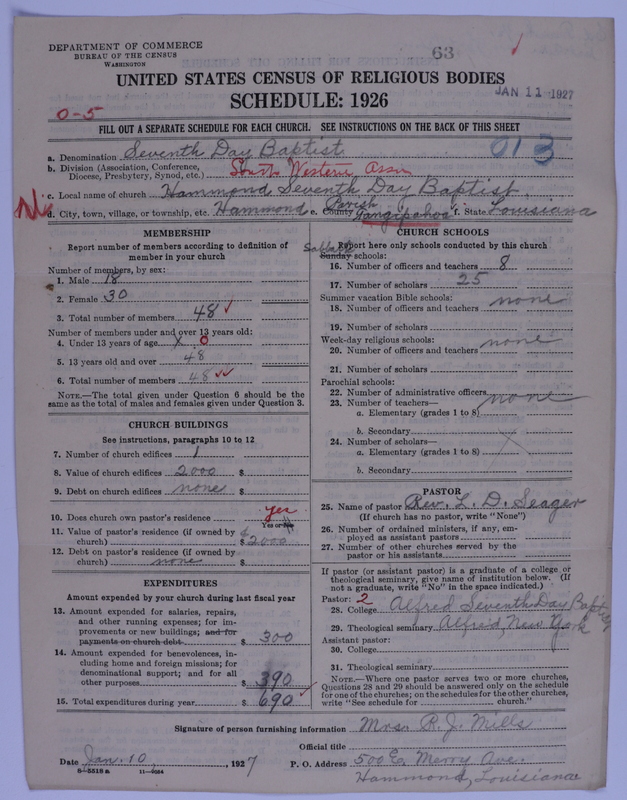 DEPARTMENT OF COMMERCE
BUREAU OF THE CENSUS
WASHINGTON
63
UNITED STATES CENSUS OF RELIGIOUS BODIES
SCHEDULE: 1926
JAN 11 1927
0-5
FILL OUT A SEPARATE SCHEDULE FOR EACH CHURCH. SEE INSTRUCTIONS ON THE BACK OF THIS SHEET
013
a. Denomination Seventh Day Baptist
b. Division (Association, Conference, Diocese, Presbytery, Synod, etc.) South Western Assn
c. Local name of church Hammond Seventh Day Baptist
d. City, town, village, or township, etc. Hammond e. County Parish Tangipahoa f. State Louisiana
MEMBERSHIP
Report number of members according to definition of member in your church
Number of members, by sex:
1. Male 18
2. Female 30
3. Total number of members 48
Number of members under and over 13 years old:
4. Under 13 years of age x 0
5. 13 years old and over 48
6. Total number of members 48
NOTE.—The total given under Question 6 should be the same as the total of males and females given under Question 3.
CHURCH BUILDINGS
See instructions, paragraphs 10 to 12
7. Number of church edifices 1
8. Value of church edifices 2000 $
9. Debt on church edifices none $
10. Does church own pastor's residence yes
Yes or No
11. Value of pastor's residence (if owned by church) $2000
12. Debt on pastor's residence (if owned by church) none $
EXPENDITURES
Amount expended by your church during last fiscal year
13. Amount expended for salaries, repairs, and other running expenses; for improvements or new buildings; and for payments on church debt $ 300
14. Amount expended for benevolences, including home and foreign missions; for denominational support; and for all other purposes $ 390
15. Total expenditures during year $ 690
CHURCH SCHOOLS
Report here only schools conducted by this church
Sabbath Sunday schools:
16. Number of officers and teachers 8
17. Number of scholars 25
Summer vacation Bible schools:
18. Number of officers and teachers none
19. Number of scholars
Week-day religious schools:
20. Number of officers and teachers none
21. Number of scholars
Parochial schools:
22. Number of administrative officers none
23. Number of teachers—
a. Elementary (grades 1 to 8)
b. Secondary
24. Number of scholars—
a. Elementary (grades 1 to 8)
b. Secondary
PASTOR
25. Name of pastor Rev. L. D. Seager
(If church has no pastor, write "None")
26. Number of ordained ministers, if any, employed as assistant pastors
27. Number of other churches served by the pastor or his assistants
If pastor (or assistant pastor) is a graduate of a college or theological seminary, give name of institution below. (If not a graduate, write "No" in the space indicated.)
Pastor: 2
28. College Alfred Seventh Day Baptist
29. Theological seminary Alfred, New York
Assistant pastor:
30. College
31. Theological seminary
NOTE.—Where one pastor serves two or more churches, Questions 28 and 29 should be answered only on the schedule for one of the churches; on the schedules for the other churches, write "See schedule for church."
Signature of person furnishing information Mrs. R. J. Mills
Official title
Date Jan. 10, 1927 P. O. Address 500 E. Merry Ave.
8-5518 a 11-9064 Hammond, Louisiana